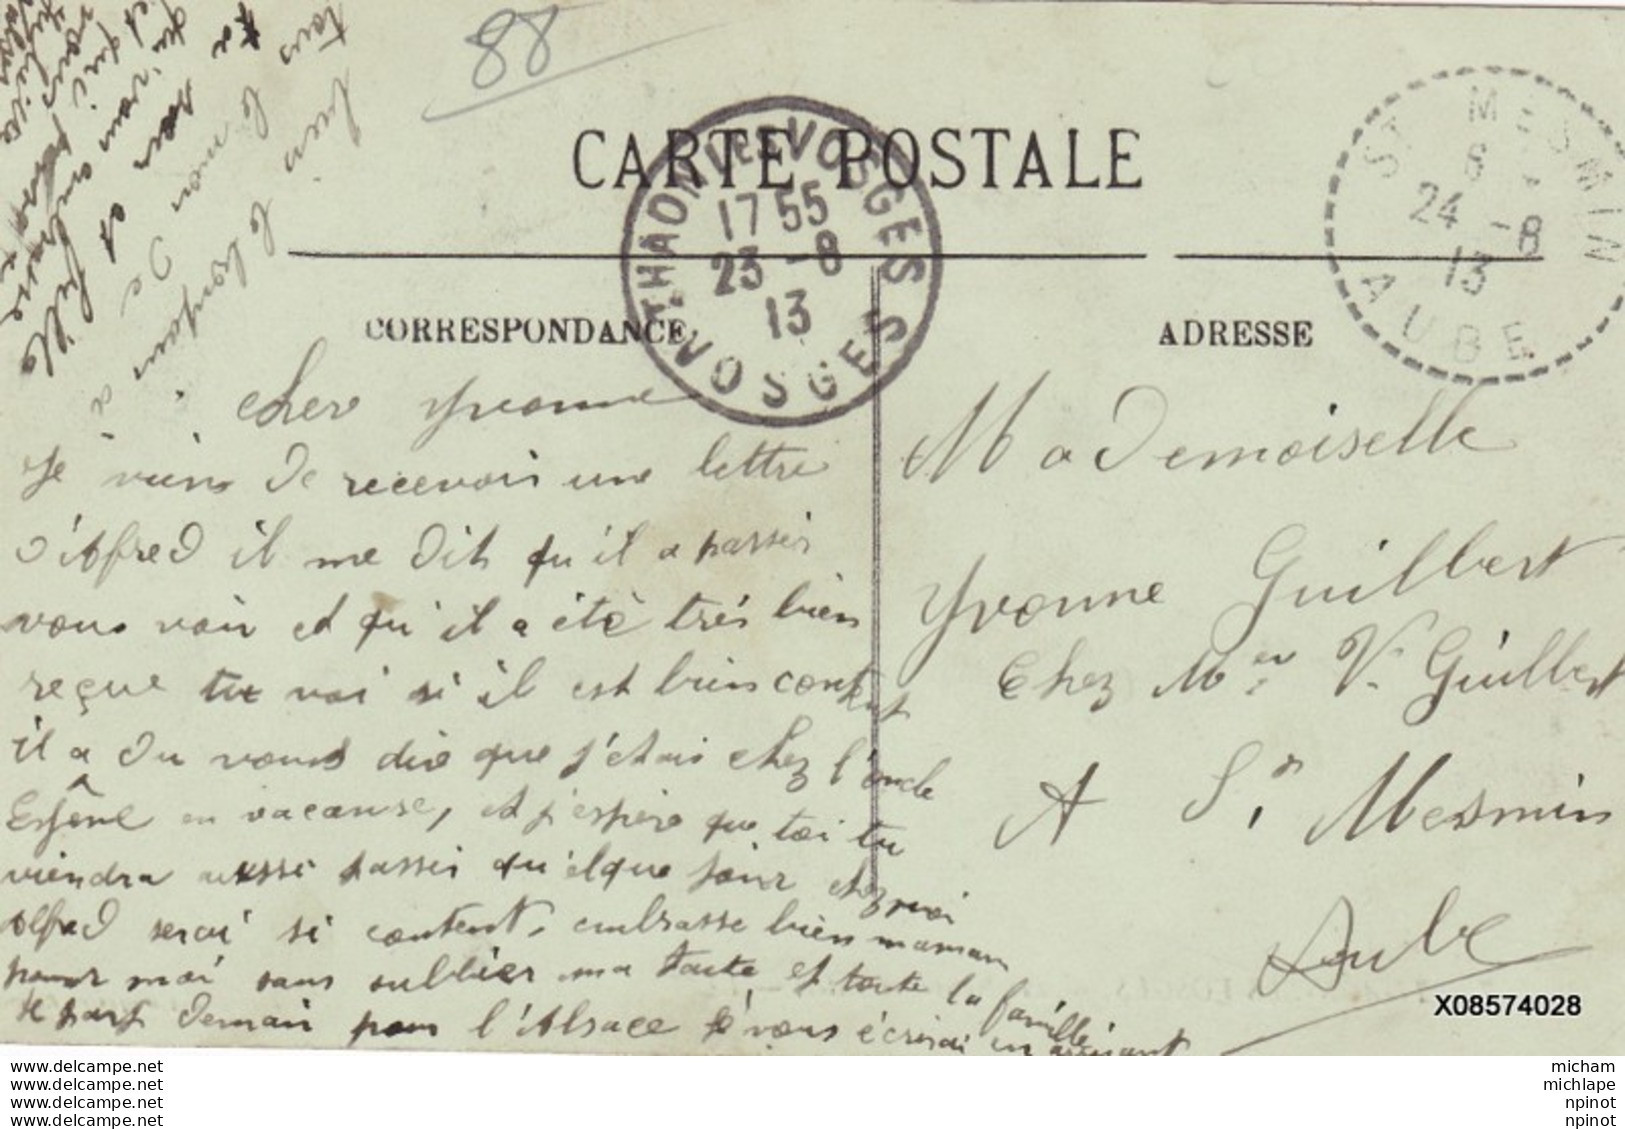 88
CARTE POSTALE
THAON-LES-VOSGES
17 55
23 -8
13
VOSGES
ST MESMIN
6
24 -8
13
AUBE
CORRESPONDANCE
ADRESSE
Cher Yvonne
Je viens de recevoir une lettre
d'Alfred il me dit qu'il a passer
vous voir et qu'il a été très bien
reçue tu voi si il est bien content
il a du vous dire que j'étais chez l'oncle
en vacanse, et j'espère que toi tu
viendra aussi passer qu'elque jour chez moi
Alfred serai si content, embrasse bien maman
pour moi sans oublier ma tante et toute la famille
Je part demain pour l'Alsace je vous écrirai en arrivant
tous bien le bonjour à
le mon de
ta sœur et
et qui vous embrasse
Mademoiselle
Yvonne Guilbert
Chez Mer V. Guilbert
A St Mesmin
Aube
X08574028
les amis de delcampe.net
les amis de delcampe.net
les amis de delcampe.net
les amis de delcampe.net
micham
michlape
npinot
npinot